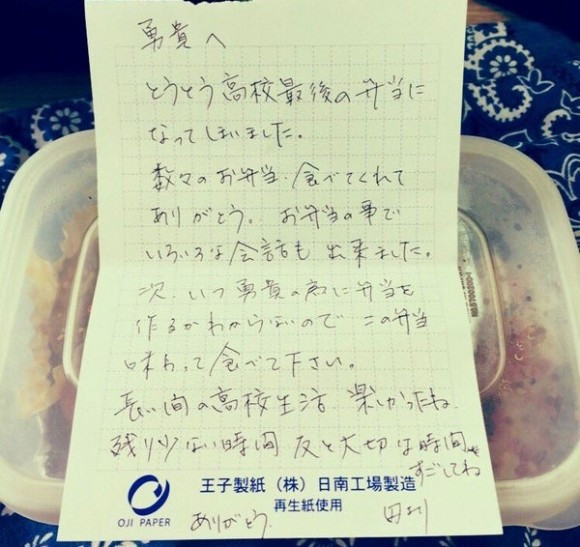 勇貴へ
とうとう高校最後の弁当に
なってしまいました。
数々のお弁当、食べてくれて
ありがとう。 お弁当の事で
いろいろな会話も出来ました。
次、いつ勇貴の為に弁当を
作るかわからないので この弁当
味わって食べて下さい。
長い間の高校生活 楽しかったね
残り少ない時間 友と大切な時間を
すごしてね
王子製紙（株）日南工場製造
再生紙使用
OJI PAPER
ありがとう 母より